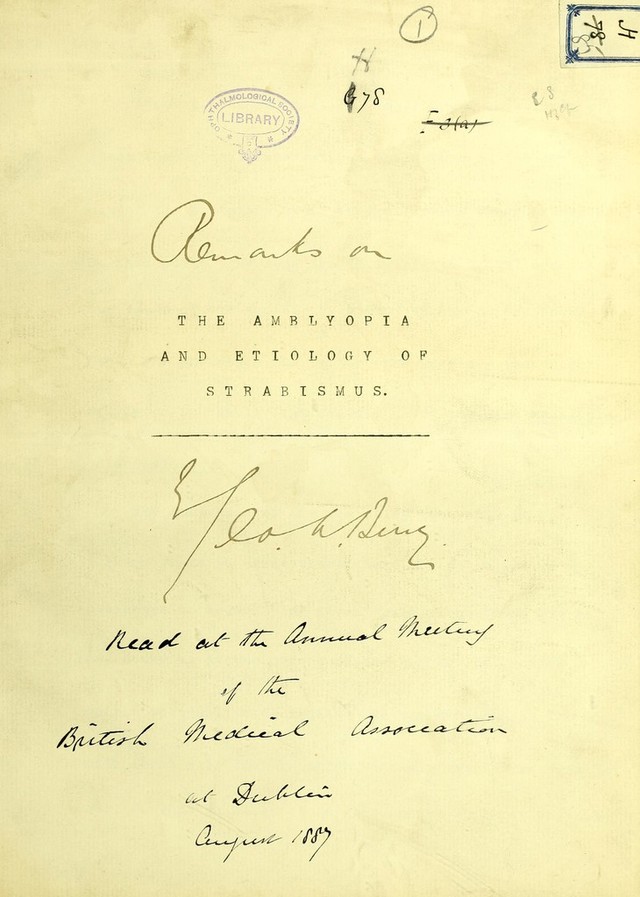 1
H
78
G78
OPHTHALMOLOGICAL SOCIETY
LIBRARY
Remarks on
THE AMBLYOPIA
AND ETIOLOGY OF
STRABISMUS.
Geo. A. Berry.
Read at the Annual Meeting
of the
British Medical Association
at Dublin
August 1887